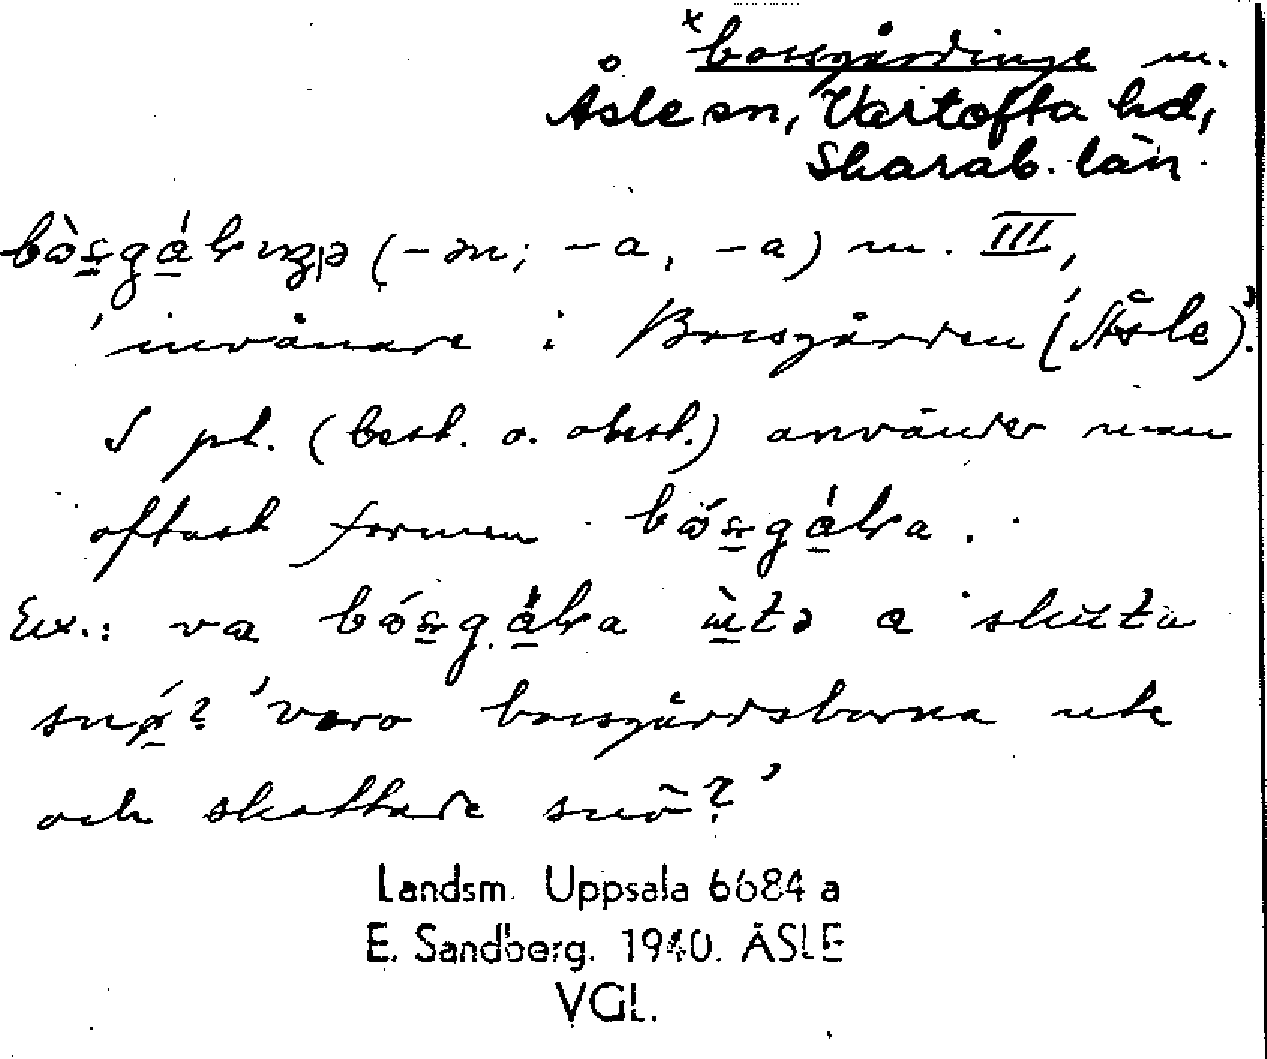 *bossgårdinge m.
Åsle sn, Vartofta hd,
Skarab. län.
(-ən; -a, -a) m. III,
'invånare i Bossgården (Åsle)'.
I pl. (best. o. obest.) använder man
oftast formen
Ex.: va ùtə a skŭta
snǿ? 'voro bossgårdsborna ute
och skottade snö?'
Landsm. Uppsala 6684 a
E. Sandberg. 1940. ÅSLE
VGL.